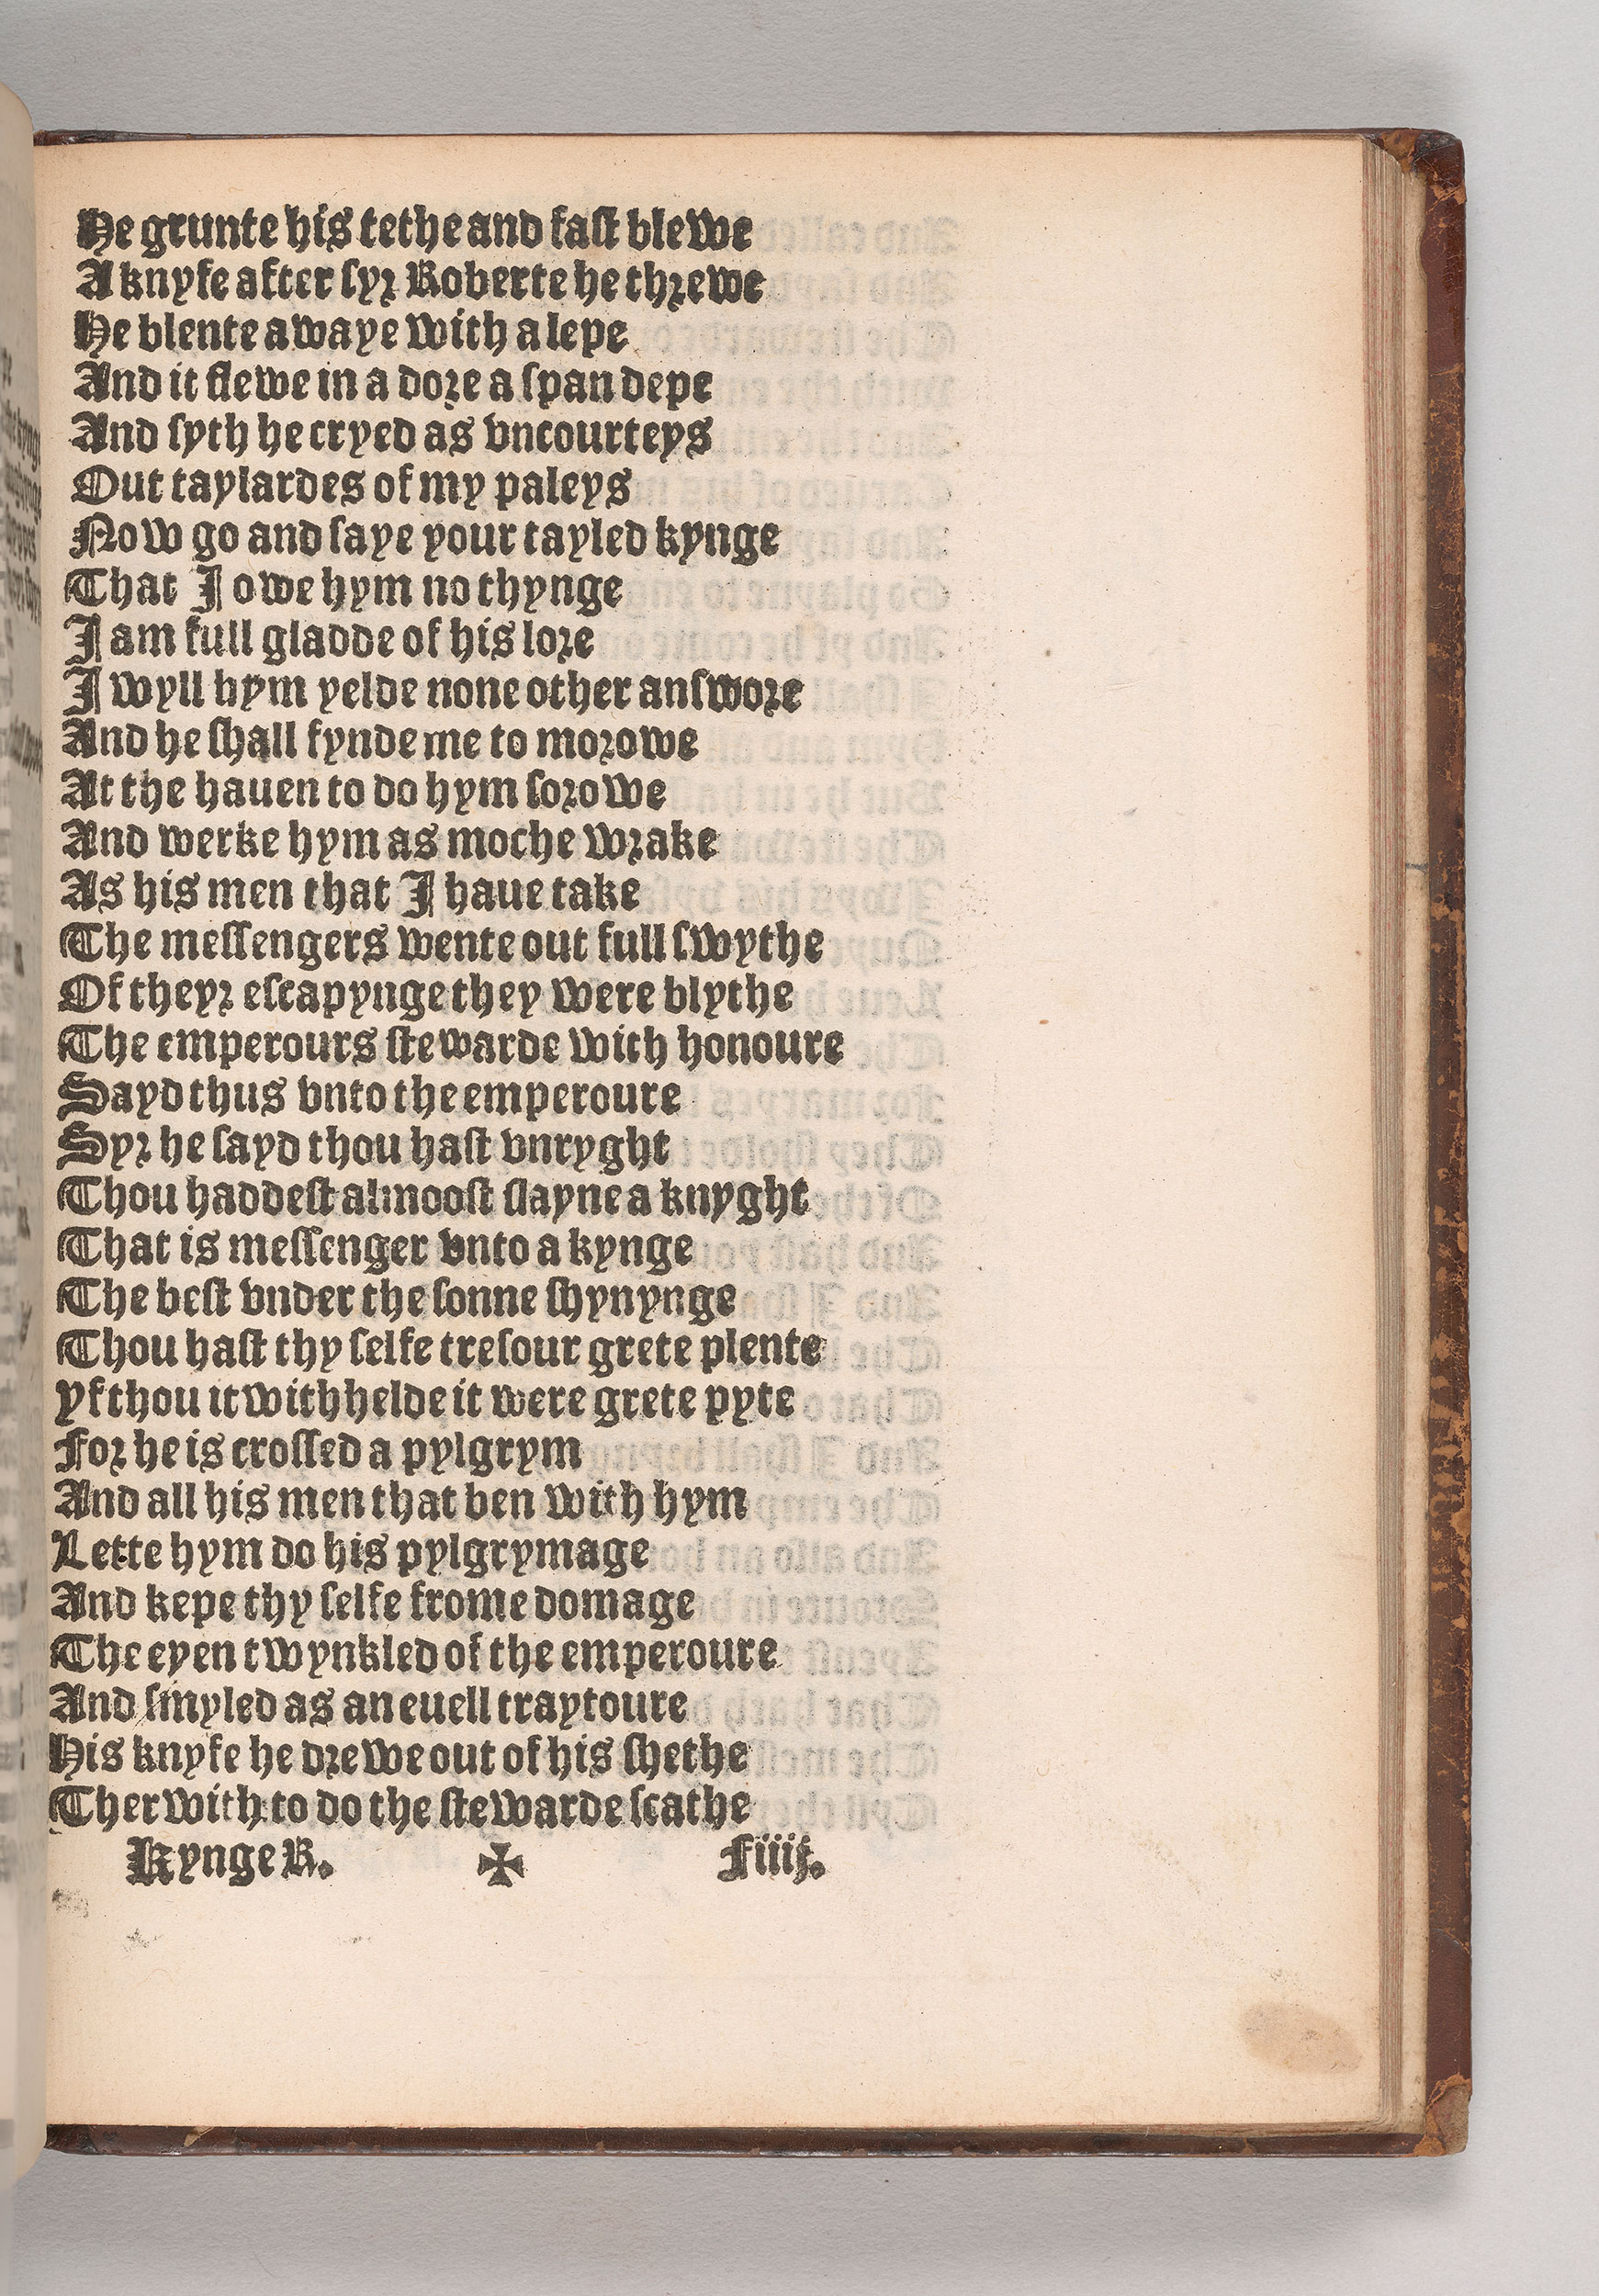 He grunte his tethe and fast blewe
A knyfe after syr Roberte he threwe
He blente awaye with a lepe
And it flewe in a dore a span depe
And syth he cryed as vncourteys
Out taylardes of my paleys
Now go and saye your tayled kynge
That I owe hym no thynge
I am full gladde of his lore
I wyll hym yelde none other answore
And he shall fynde me to morowe
At the hauen to do hym sorowe
And werke hym as moche wrake
As his men that I haue take
The messengers wente out full swythe
Of theyr escapynge they were blythe
The emperours stewarde with honoure
Sayd thus vnto the emperoure
Syr he sayd thou hast vnryght
Thou haddest almoost slayne a knyght
That is messenger vnto a kynge
The best vnder the sonne shynynge
Thou hast thy selfe tresour grete plente
Yf thou it withhelde it were grete pyte
For he is crossed a pylgrym
And all his men that ben with hym
Lette hym do his pylgrymage
And kepe thy selfe frome domage
The eyen twynkled of the emperoure
And smyled as an euell traytoure
His knyfe he drewe out of his shethe
Ther with to do the stewarde scathe
Kynge R. ✠ Fiiij.